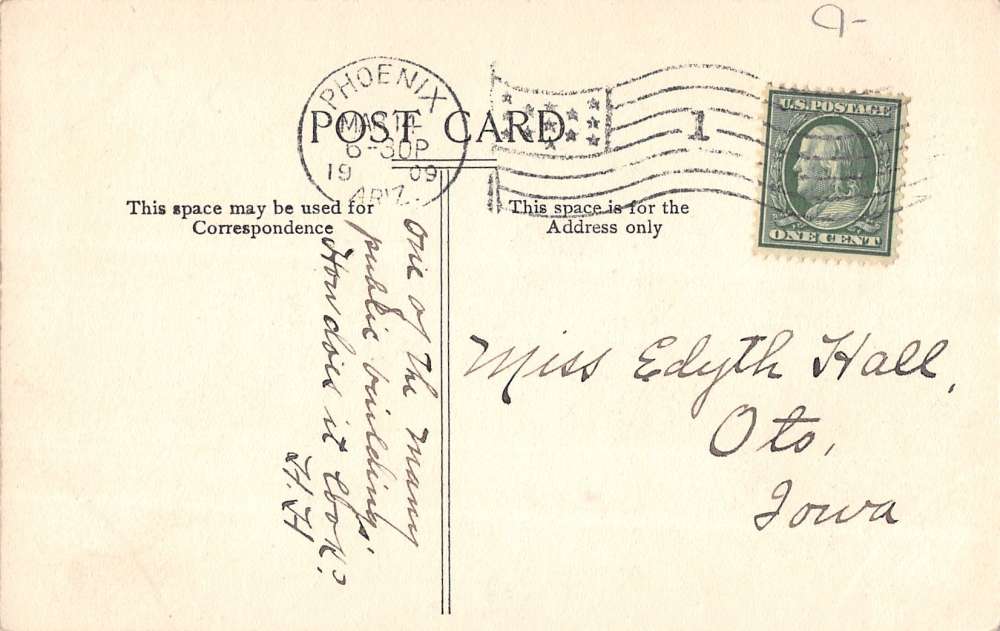 9-
PHOENIX
6-30P
19 09
ARIZ.
1
U.S. POSTAGE
ONE CENT
POST CARD
This space may be used for
Correspondence
This space is for the
Address only
One of the many
public buildings.
How does it look?
H. H.
Miss Edyth Hall,
Oto,
Iowa